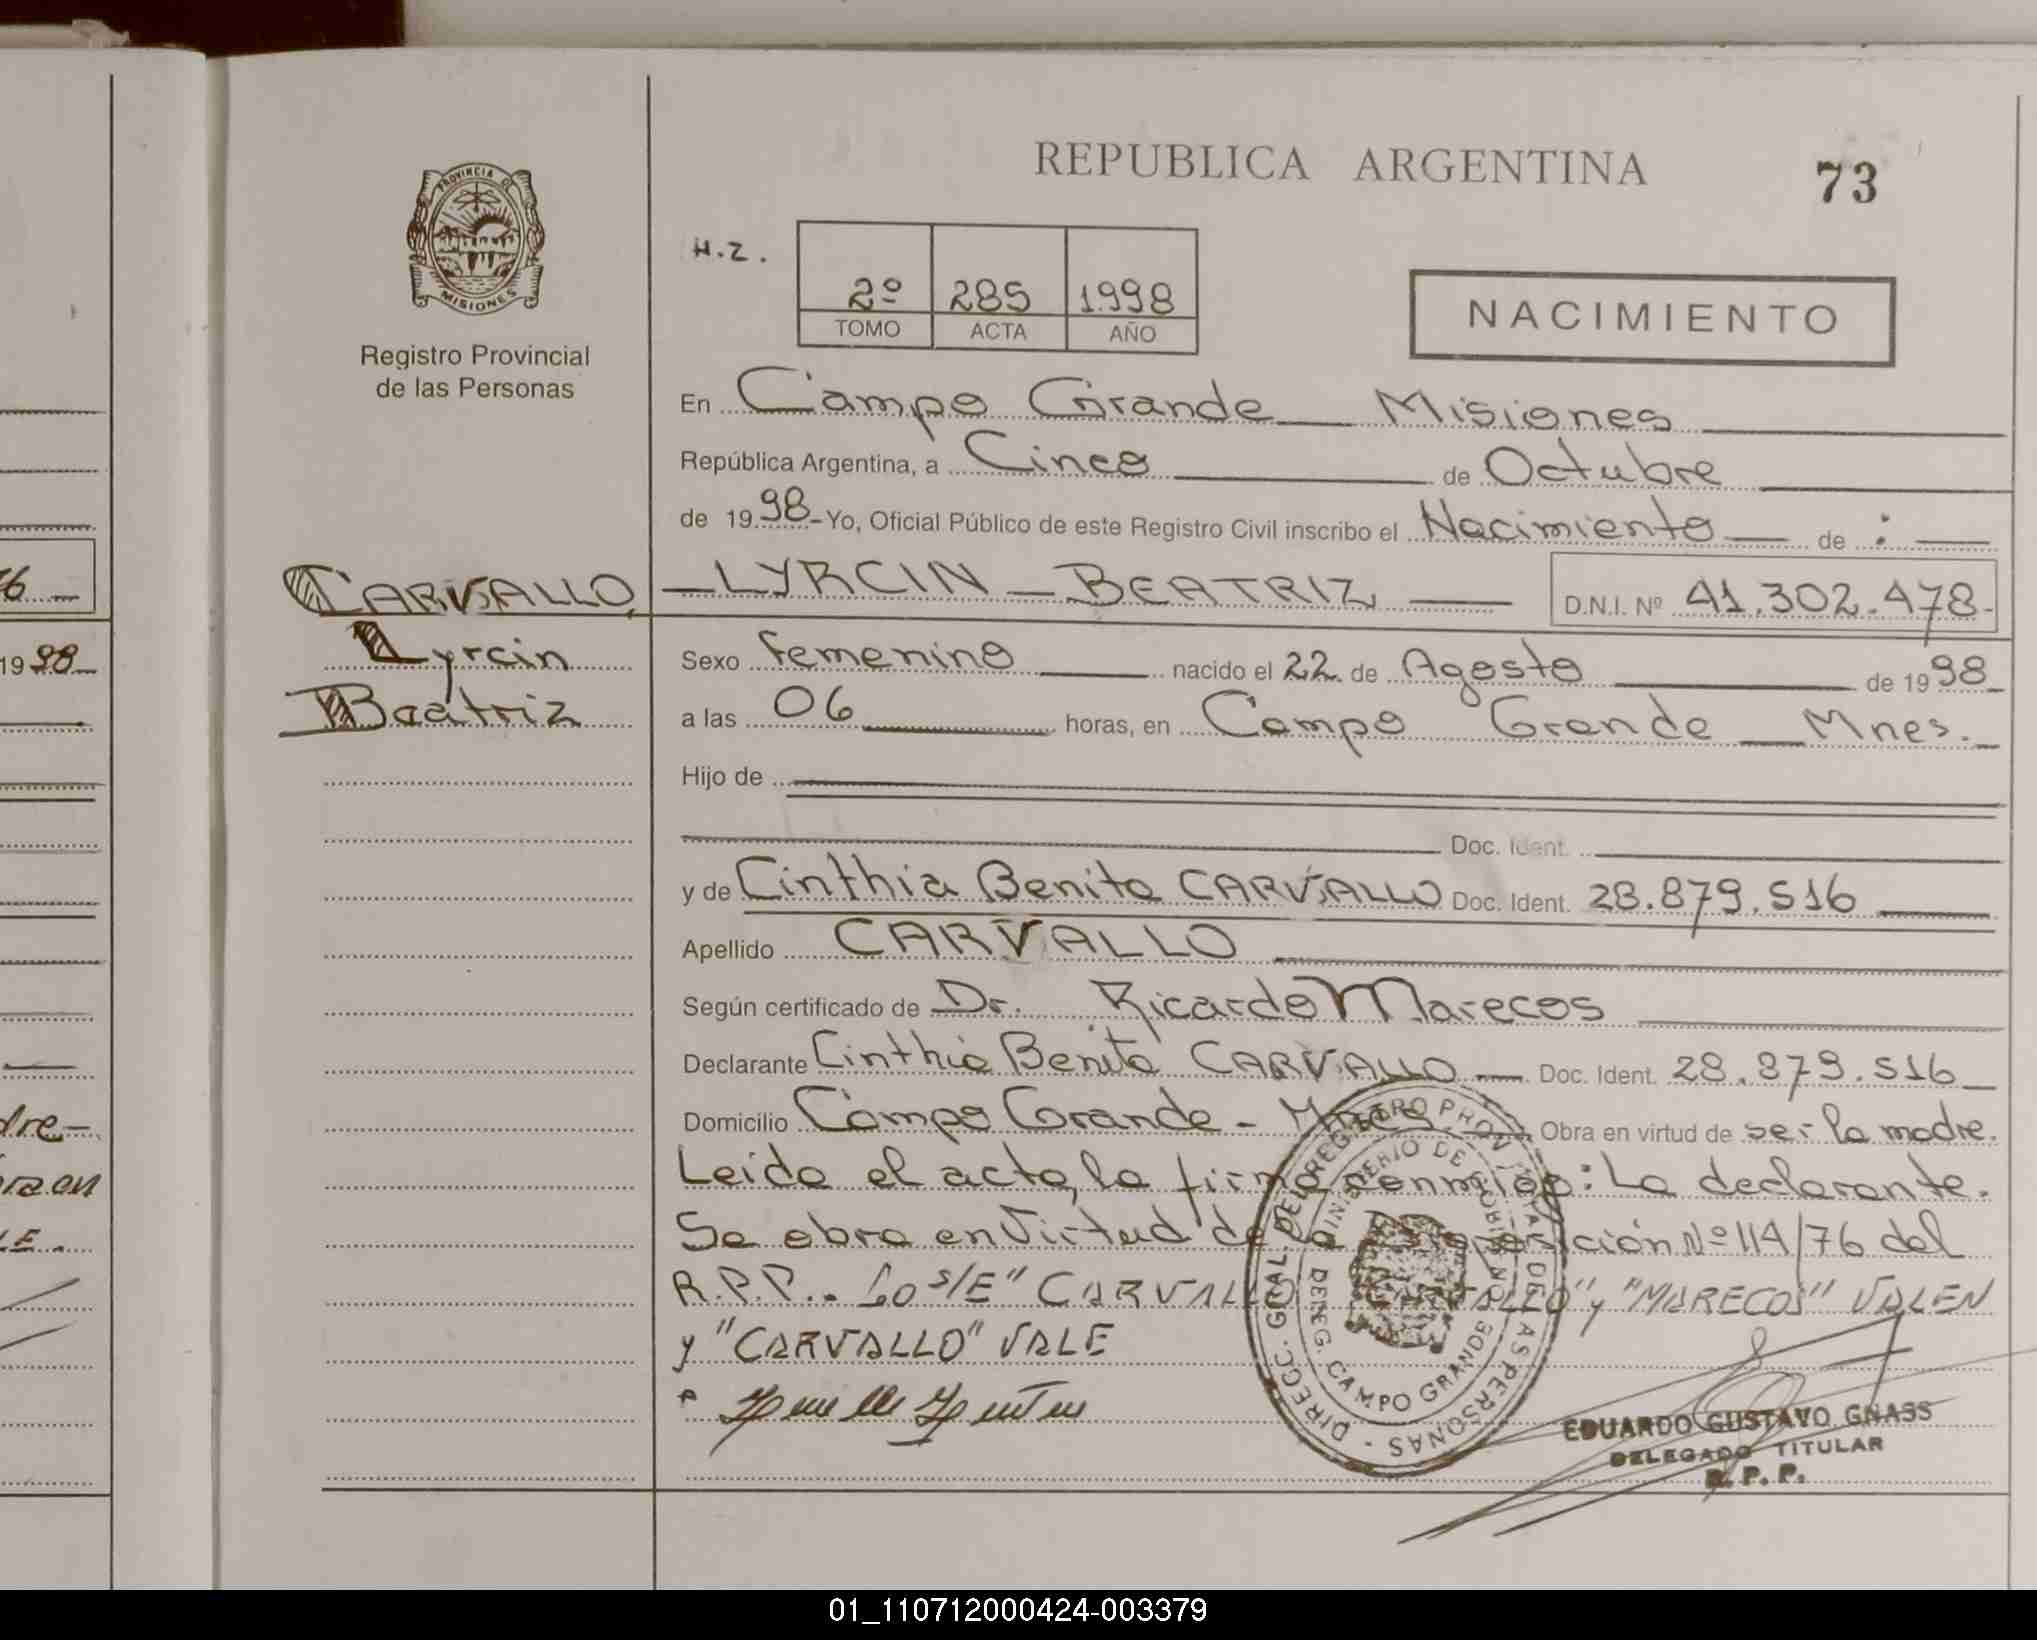 REPUBLICA ARGENTINA
73
PROVINCIA DE
MISIONES
Registro Provincial
de las Personas
H.Z.
2º 285 1998
TOMO ACTA AÑO
NACIMIENTO
En Campo Grande Misiones
República Argentina, a Cinco de Octubre
de 1998 - Yo, Oficial Público de este Registro Civil inscribo el Nacimiento de :
CARVALLO, LYRCIN BEATRIZ D.N.I. Nº 41.302.478-
Lyrcin
Beatriz
Sexo femenino nacido el 22 de Agosto de 1998
a las 06 horas, en Campo Grande Mnes.
Hijo de
Doc. Ident.
y de Cinthia Benita CARVALLO Doc. Ident. 28.879.516
Apellido CARVALLO
Según certificado de Dr. Ricardo Marecos
Declarante Cinthia Benita CARVALLO Doc. Ident. 28.879.516
Domicilio Campo Grande - Mnes. Obra en virtud de ser la madre.
Leida el acta, la firma conmigo: La declarante.
Se obra en Virtud de la Disposición Nº 114/76 del
R.P.P.. Lo s/E" CARVALLO y "MARECOS" VALEN
y "CARVALLO" VALE
DIRECC. GRAL. DEL REGISTRO PROV. DE LAS PERSONAS
MINISTERIO DE GOBIERNO
DELEG. CAMPO GRANDE
EDUARDO GUSTAVO GNASS
DELEGADO TITULAR
R.P.P.
16
1998
01_110712000424-003379